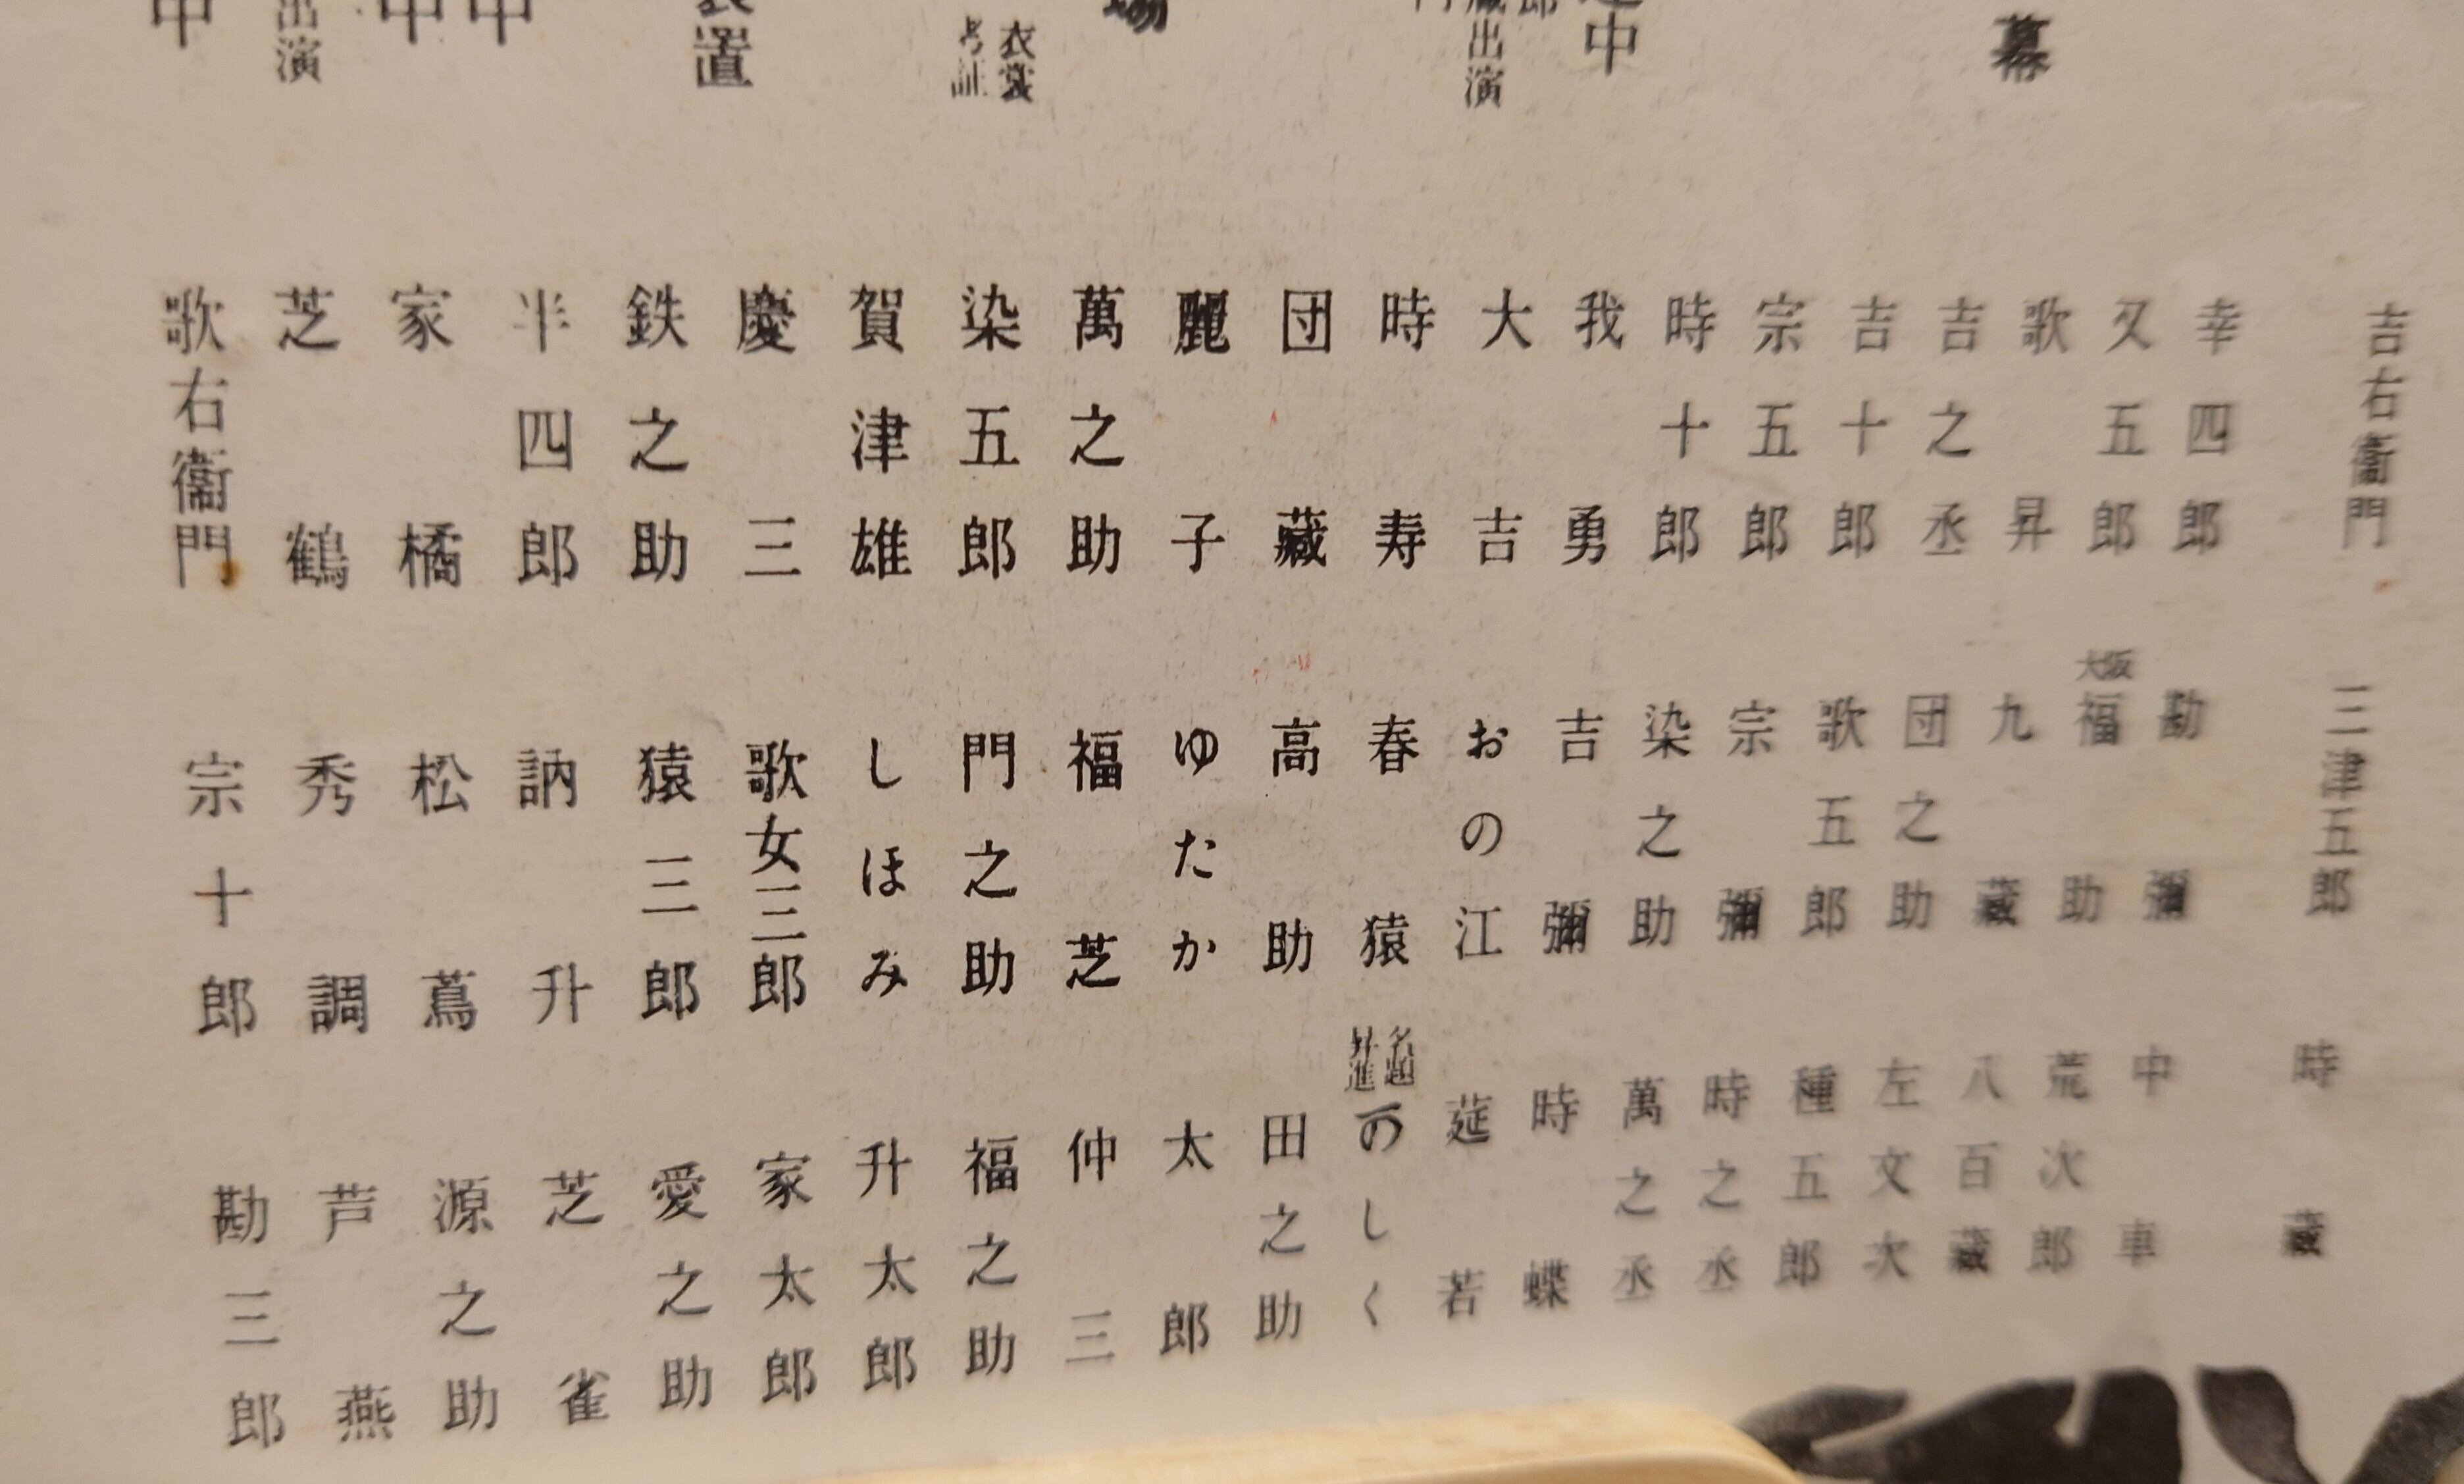 幕
中
蔵出演
場
衣裳
考証
装置
中
中
出演
中
吉右衞門
幸四郎
又五郎
歌昇
吉之丞
吉十郎
宗五郎
時十郎
我勇
大吉
時寿
団蔵
麗子
萬之助
染五郎
賀津雄
慶三
鉄之助
半四郎
家橘
芝鶴
歌右衞門
三津五郎
勘彌
大阪
福助
九蔵
団之助
歌五郎
宗彌
染之助
吉彌
おの江
春猿
高助
ゆたか
福芝
門之助
しほみ
歌女三郎
猿三郎
訥升
松蔦
秀調
宗十郎
時蔵
中車
荒次郎
八百蔵
左文次
種五郎
時之丞
萬之丞
時蝶
莚若
名題
昇進
のしく
田之助
太郎
仲三
福之助
升太郎
家太郎
愛之助
芝雀
源之助
芦燕
勘三郎